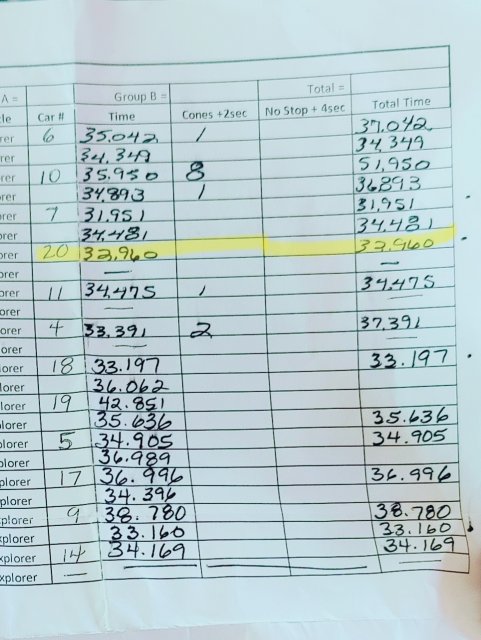 A = Group B = Total =
cle Car # Time Cones +2sec No Stop + 4sec Total Time
rer 6 35.042 1 37.042
rer 34.349 34.349
rer 10 35.950 8 51.950
rer 34.893 1 36.893
rer 7 31.951 31.951
rer 34.481 34.481
rer 20 32.960 32.960
orer —
orer 11 34.475 1 34.475
orer —
orer 4 33.391 2 37.391
orer —
orer 18 33.197 33.197
lorer 36.062
lorer 19 42.851
lorer 35.636 35.636
plorer 5 34.905 34.905
plorer 36.989
plorer 17 36.996 36.996
plorer 34.396
xplorer 9 38.780 38.780
xplorer 33.160 33.160
xplorer 14 34.169 34.169
xplorer —